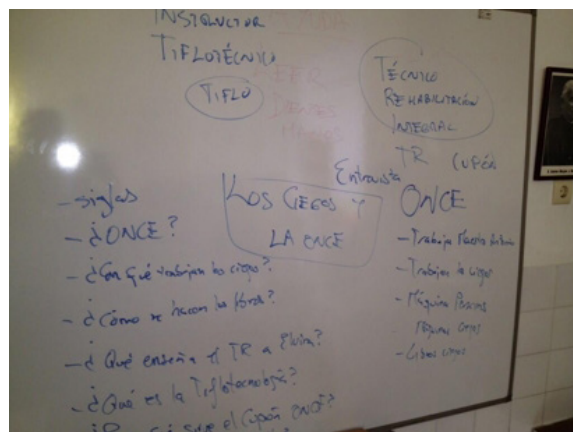 INSTRUCTOR
TIFLOTÉCNICO
TIFLO
TÉCNICO
REHABILITACIÓN
INTEGRAL
TR CUPÓN
Entrevista
LOS CIEGOS Y
LA ONCE
ONCE
- siglas
- ¿ONCE?
- ¿Con qué trabajan los ciegos?
- ¿Cómo se hacen los libros?
- ¿Qué enseña el TR a Elvira?
- ¿Qué es la Tiflotecnología?
el Cupón ONCE?
- Trabaja
- Trabajan los ciegos
- Máquina Perkins
- Libros ciegos